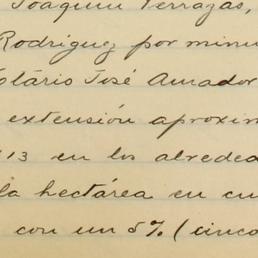 Joaquin Terrazas,
Rodriguez por minu
otário José Amador
extensión aproxim
13 en los alrededo
la hectárea en cu
con un 5% (cinco